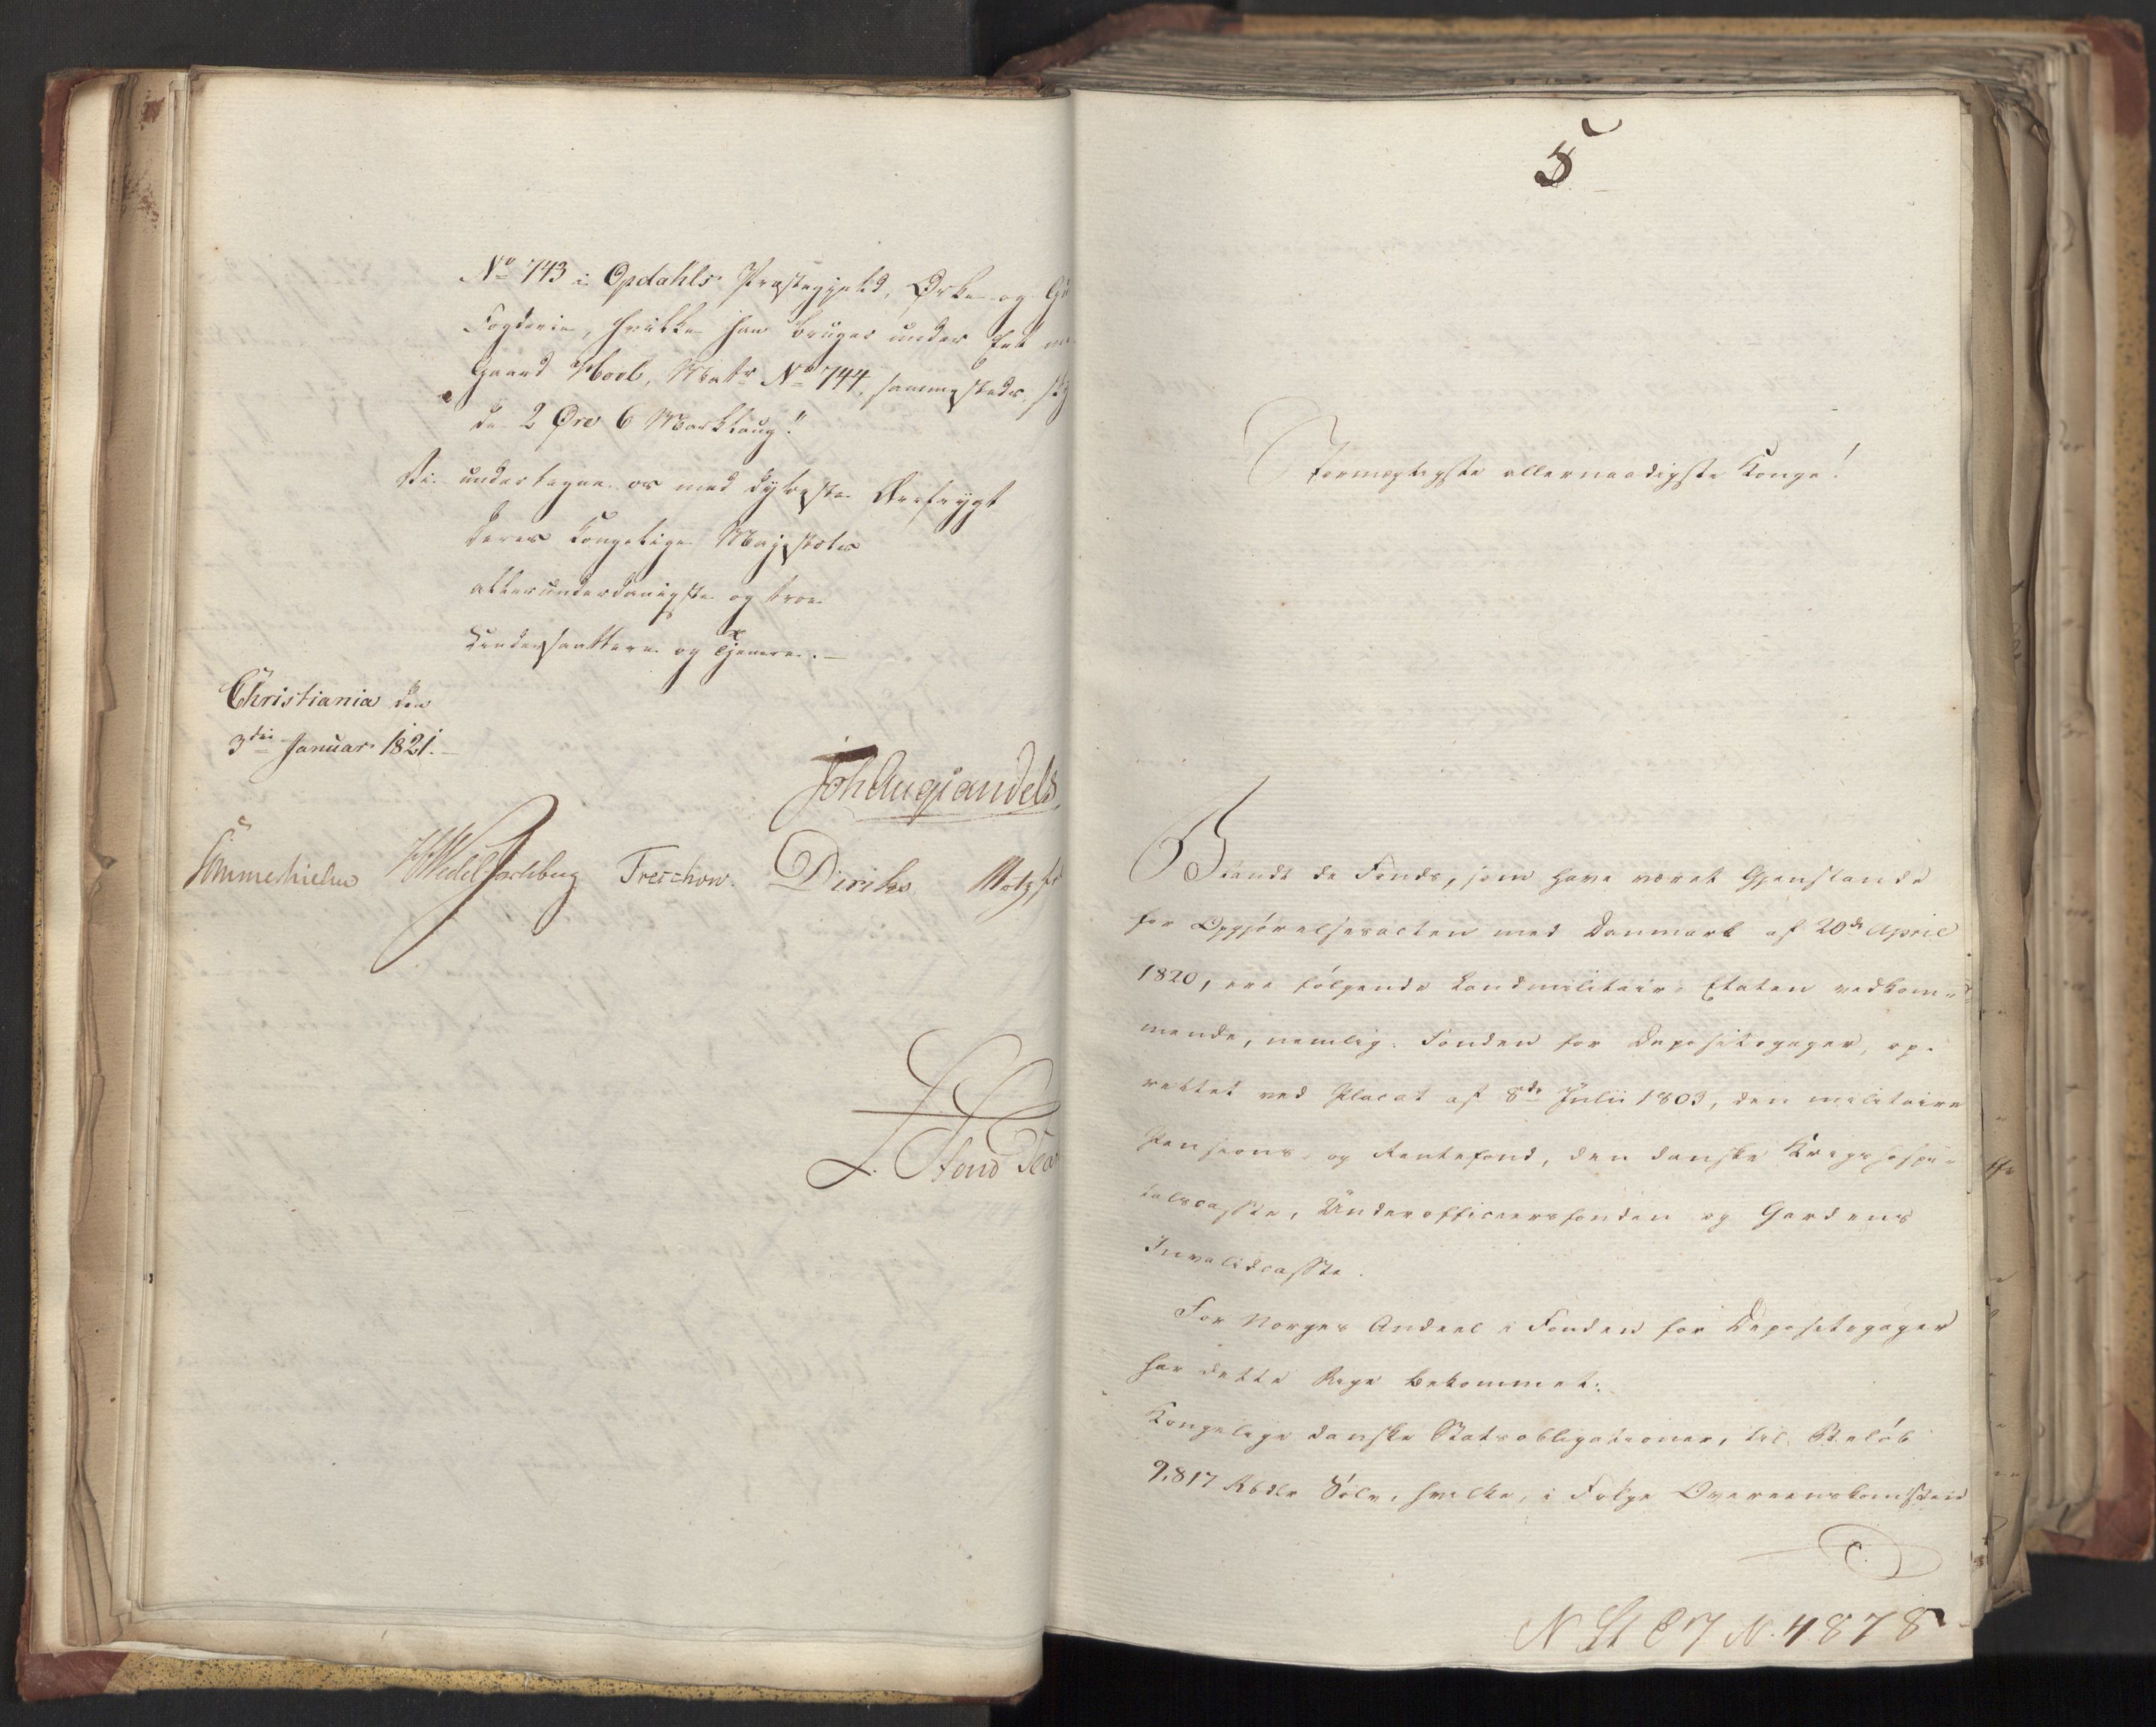 No 743 i Opdahls Præstegjeld, Orke- og
Fogderie, hvilke han bruger under Eet
Gaard Hool, Matr No 744, sammesteds,
de 2 Øre 6 Marklaug!!
Vi undertegne os med dybeste Ærefrygt
Deres Kongelige Majestæts
allerunderdanigste og troe
Undersaatter og Tjenere.-
Christiania den
3die Januar 1821.-
Joh Aug Sandels
Sommerhielm HWedel Jarlsberg Treschow. Diriks Motzfe
L. Stoud
5
Stormægtigste allernaadigste Konge!
Blandt de Fonds, som have været Gjenstande
for Opgjørelsesacten med Danmark af 20de April
1820, ere følgende Landmilitair-Etaten vedkom-
mende, nemlig: Fonden for Depositogager, op-
rettet ved Placat af 8de Julii 1803, den militaire
Pensions- og Rentefond, den danske Krigshospi-
talscasse, Underofficeersfonden og Gardens
Invalidcasse.
For Norges Andeel i Fonden for Depositogager
har dette Rige bekommet:
Kongelige danske Statsobligationer, til Beløb
9,817 Rbdlr Sølv, hvilke, i Følge Overeenskomsten
N St C7 N. 4878